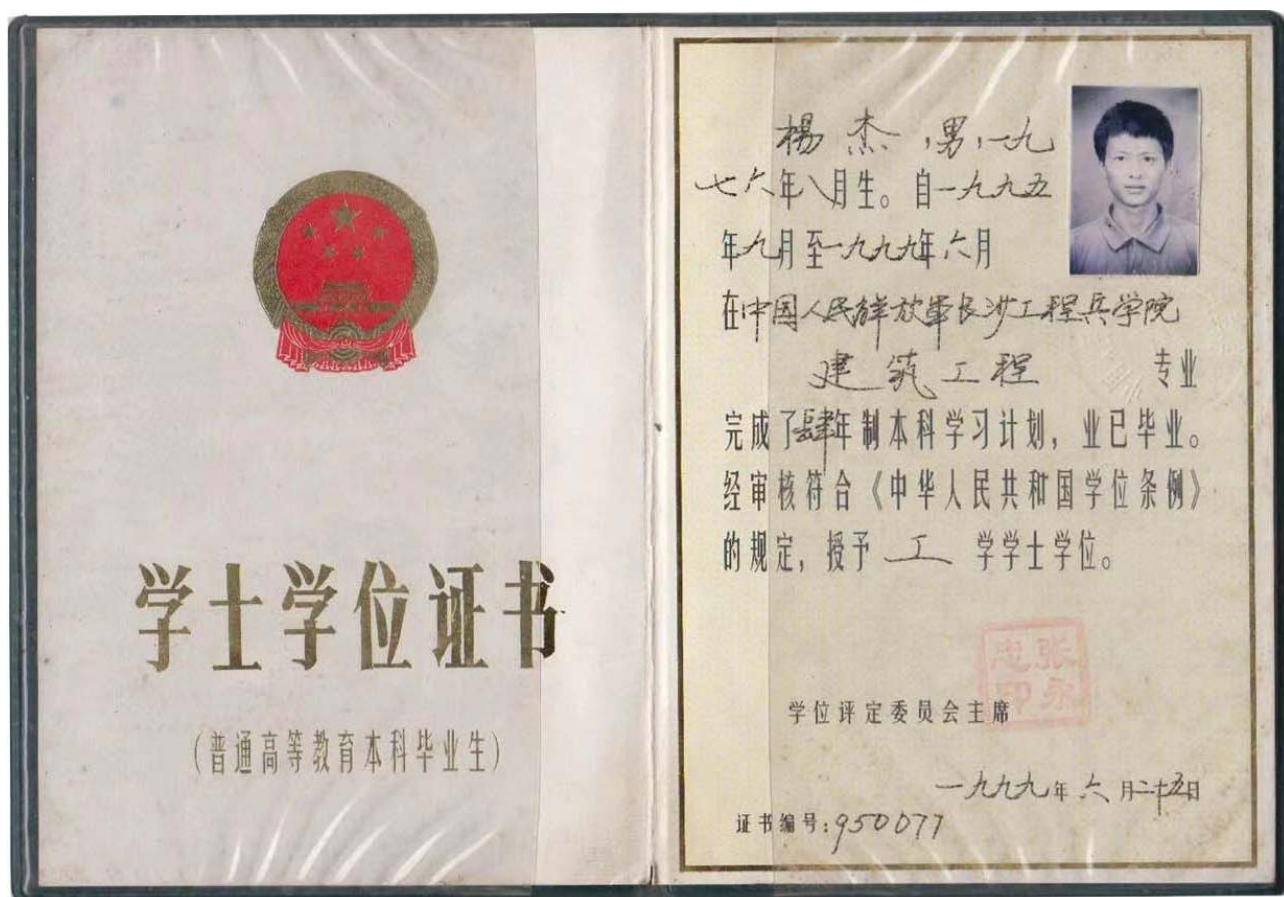 学士学位证书
(普通高等教育本科毕业生)
楊杰,男,一九
七六年八月生。自一九九五
年九月至一九九九年六月
在中国人民解放军长沙工程兵学院
建筑工程 专业
完成了肆年制本科学习计划,业已毕业。
经审核符合《中华人民共和国学位条例》
的规定,授予 工 学学士学位。
学位评定委员会主席
张永
印
一九九九年六月二十五日
证书编号:950077